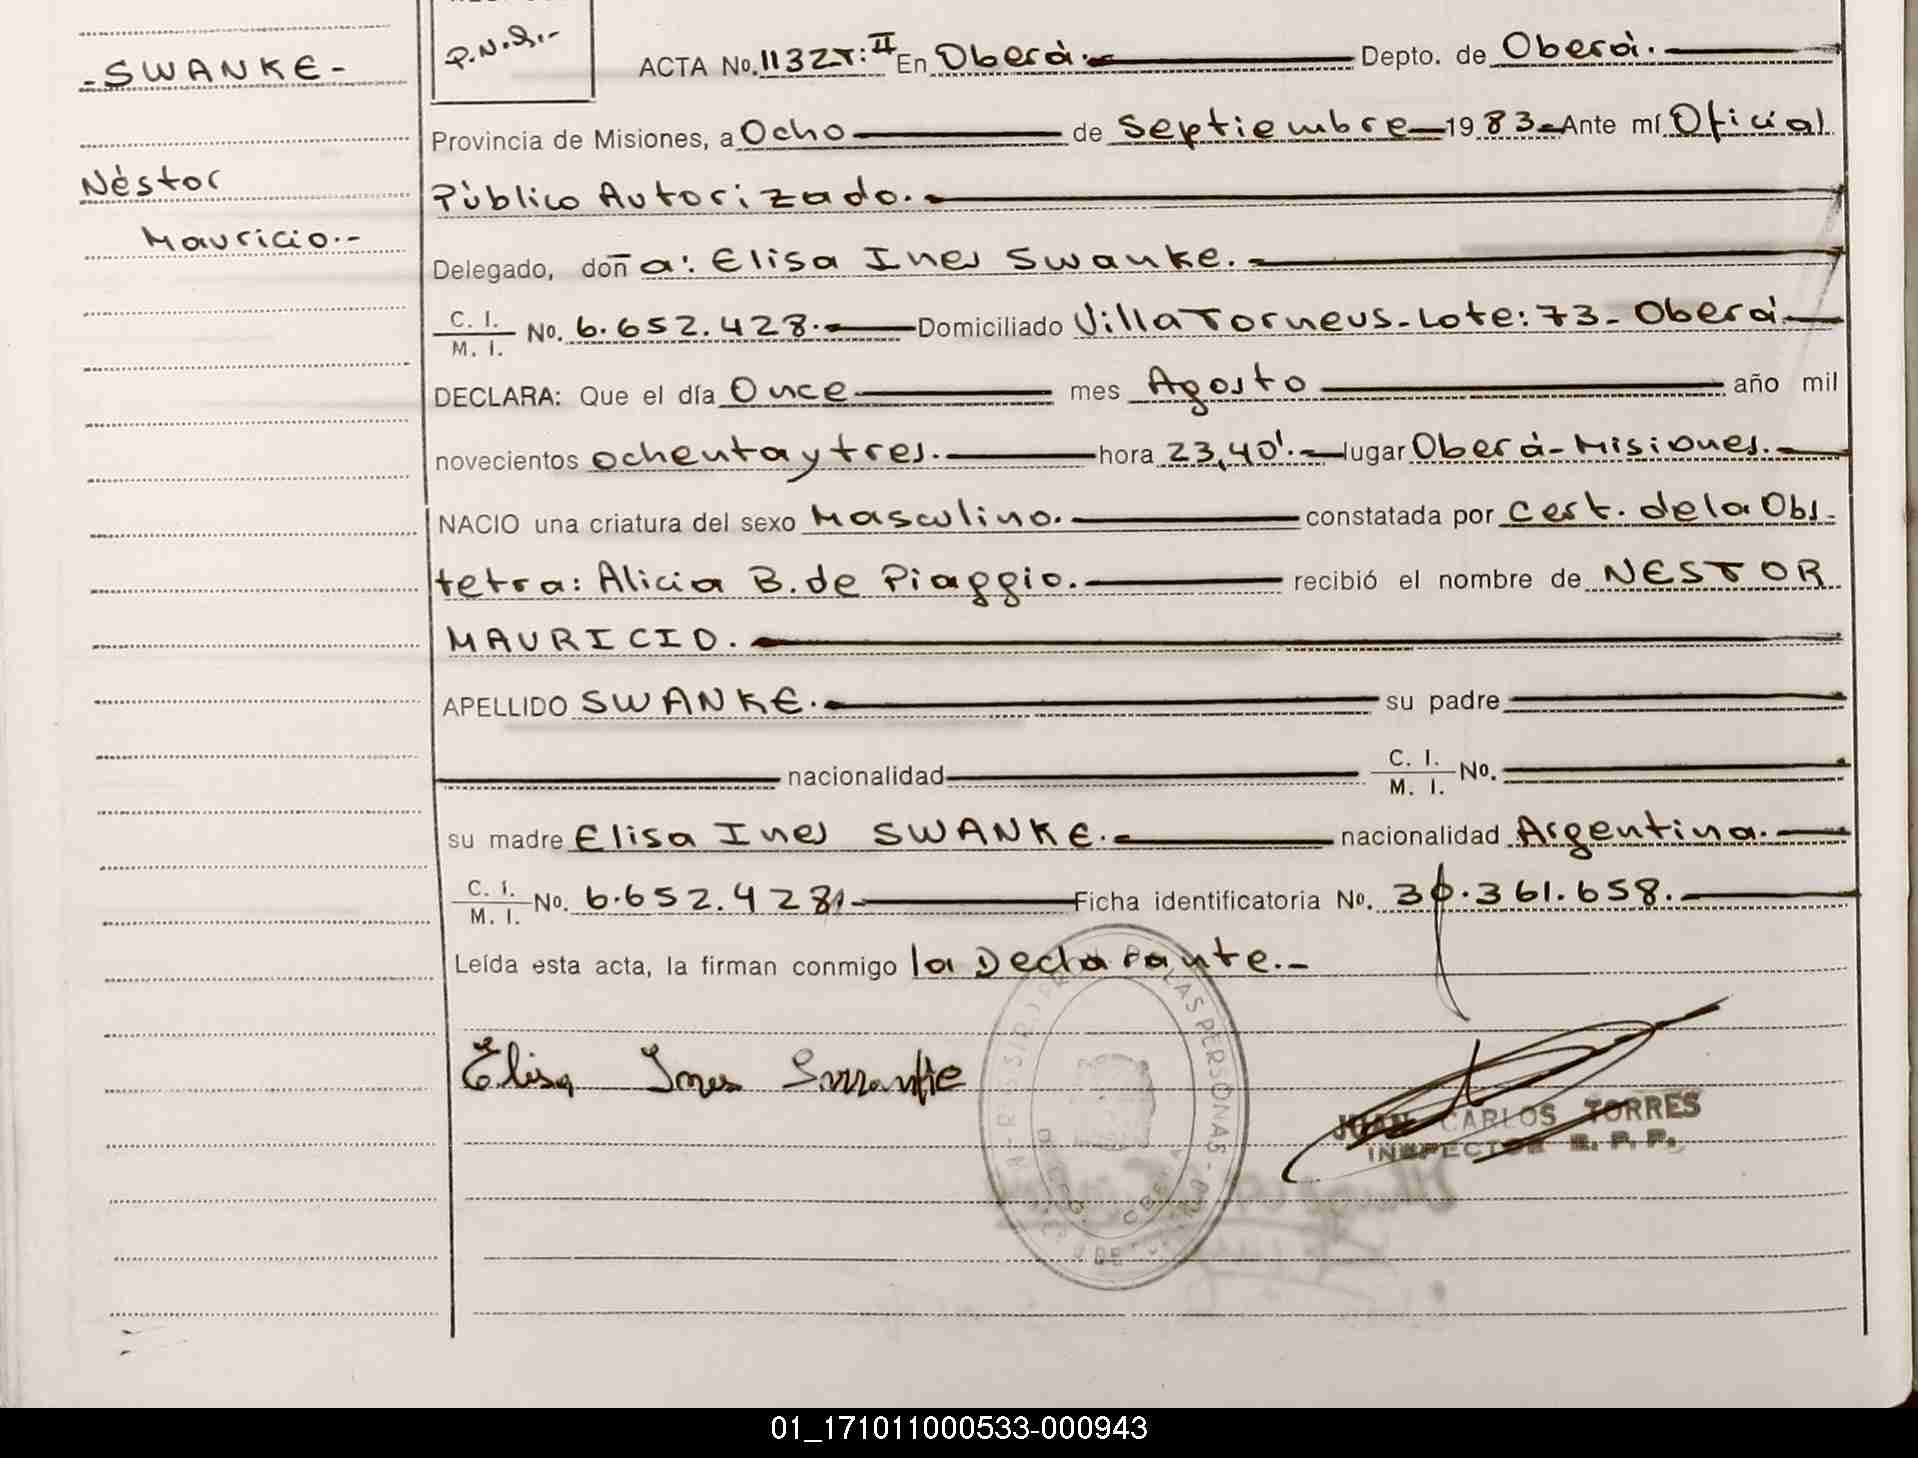 -SWANKE-
Néstor
Mauricio.-
P.N.S.-
ACTA No. 1132T:II En Oberá. Depto. de Oberá.
Provincia de Misiones, a Ocho de Septiembre 1983 Ante mí Oficial
Público Autorizado.
Delegado, doña: Elisa Ines Swanke.
C. I.
M. I. No. 6.652.428. Domiciliado Villa Torneus-Lote:73-Oberá
DECLARA: Que el día Once mes Agosto año mil
novecientos ochenta y tres. hora 23,40'. lugar Oberá-Misiones.
NACIO una criatura del sexo Masculino. constatada por Cert. de la Obs-
tetra: Alicia B. de Piaggio. recibió el nombre de NESTOR
MAURICIO.
APELLIDO SWANKE. su padre
nacionalidad C. I.
M. I. No.
su madre Elisa Ines SWANKE. nacionalidad Argentina.
C. I.
M. I. No. 6.652.428. Ficha identificatoria No. 30.361.658.
Leída esta acta, la firman conmigo la Declarante.-
Elisa Ines Swanke
LAS PERSONAS
OBERA
JUAN CARLOS TORRES
INSPECTOR R. P. P.
01_171011000533-000943